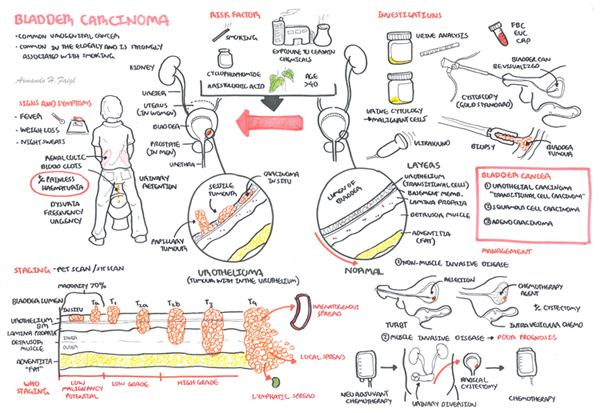 BLADDER CARCINOMA
• COMMON UROGENITAL CANCER
• COMMON IN THE ELDERLY AND IS STRONGLY
ASSOCIATED WITH SMOKING
Armando H. Faigl
SIGNS AND SYMPTOMS
• FEVER
• WEIGHT LOSS
• NIGHT SWEATS
RENAL COLIC
BLOOD CLOTS
PAINLESS
HAEMATURIA
DYSURIA
FREQUENCY
URGENCY
URINARY
RETENTION
KIDNEY
URETER
UTERUS
(IN WOMEN)
BLADDER
PROSTATE
(IN MEN)
URETHRA
RISK FACTOR
SMOKING
EXPOSURE TO CERTAIN
CHEMICALS
CYCLOPHOSPHAMIDE
ARISTOLOCHIC ACID
AGE
>40
SESSILE
TUMOUR
CARCINOMA
IN SITU
PAPILLARY
TUMOUR
UROTHELIOMA
(TUMOUR WITHIN THE UROTHELIUM)
LUMEN OF
BLADDER
NORMAL
LAYERS
UROTHELIUM
(TRANSITIONAL CELLS)
BASEMENT MEMB.
LAMINA PROPRIA
DETRUSOR MUSCLE
ADVENTITIA
(FAT)
INVESTIGATIONS
URINE ANALYSIS
FBC
EUC
URINE CYTOLOGY
→ MALIGNANT CELLS
BLADDER CAN
BE VISUALIZED
CYSTOSCOPY
(GOLD STANDARD)
ULTRASOUND
BIOPSY
BLADDER
TUMOUR
BLADDER CANCER
① UROTHELIAL CARCINOMA
"TRANSITIONAL CELL CARCINOMA"
② SQUAMOUS CELL CARCINOMA
③ ADENOCARCINOMA
MANAGEMENT
① NON-MUSCLE INVASIVE DISEASE
RESECTION
CHEMOTHERAPY
AGENT
CYSTECTOMY
TURBT
INTRAVESICULAR CHEMO
② MUSCLE INVASIVE DISEASE → POOR PROGNOSIS
NEOADJUVANT
CHEMOTHERAPY
URINARY DIVERSION
RADICAL
CYSTECTOMY
CHEMOTHERAPY
STAGING - PET SCAN / CT SCAN
MAJORITY 70%
BLADDER LUMEN
IN SITU
Ta
T1
T2a
T2b
T3
T4
UROTHELIUM
BM
LAMINA PROPRIA
DETRUSOR
MUSCLE
INNER
OUTER
ADVENTITIA
"FAT"
WHO
STAGING
LOW
MALIGNANCY
POTENTIAL
LOW GRADE
HIGH GRADE
HAEMATOGENOUS
SPREAD
LOCAL SPREAD
LYMPHATIC SPREAD